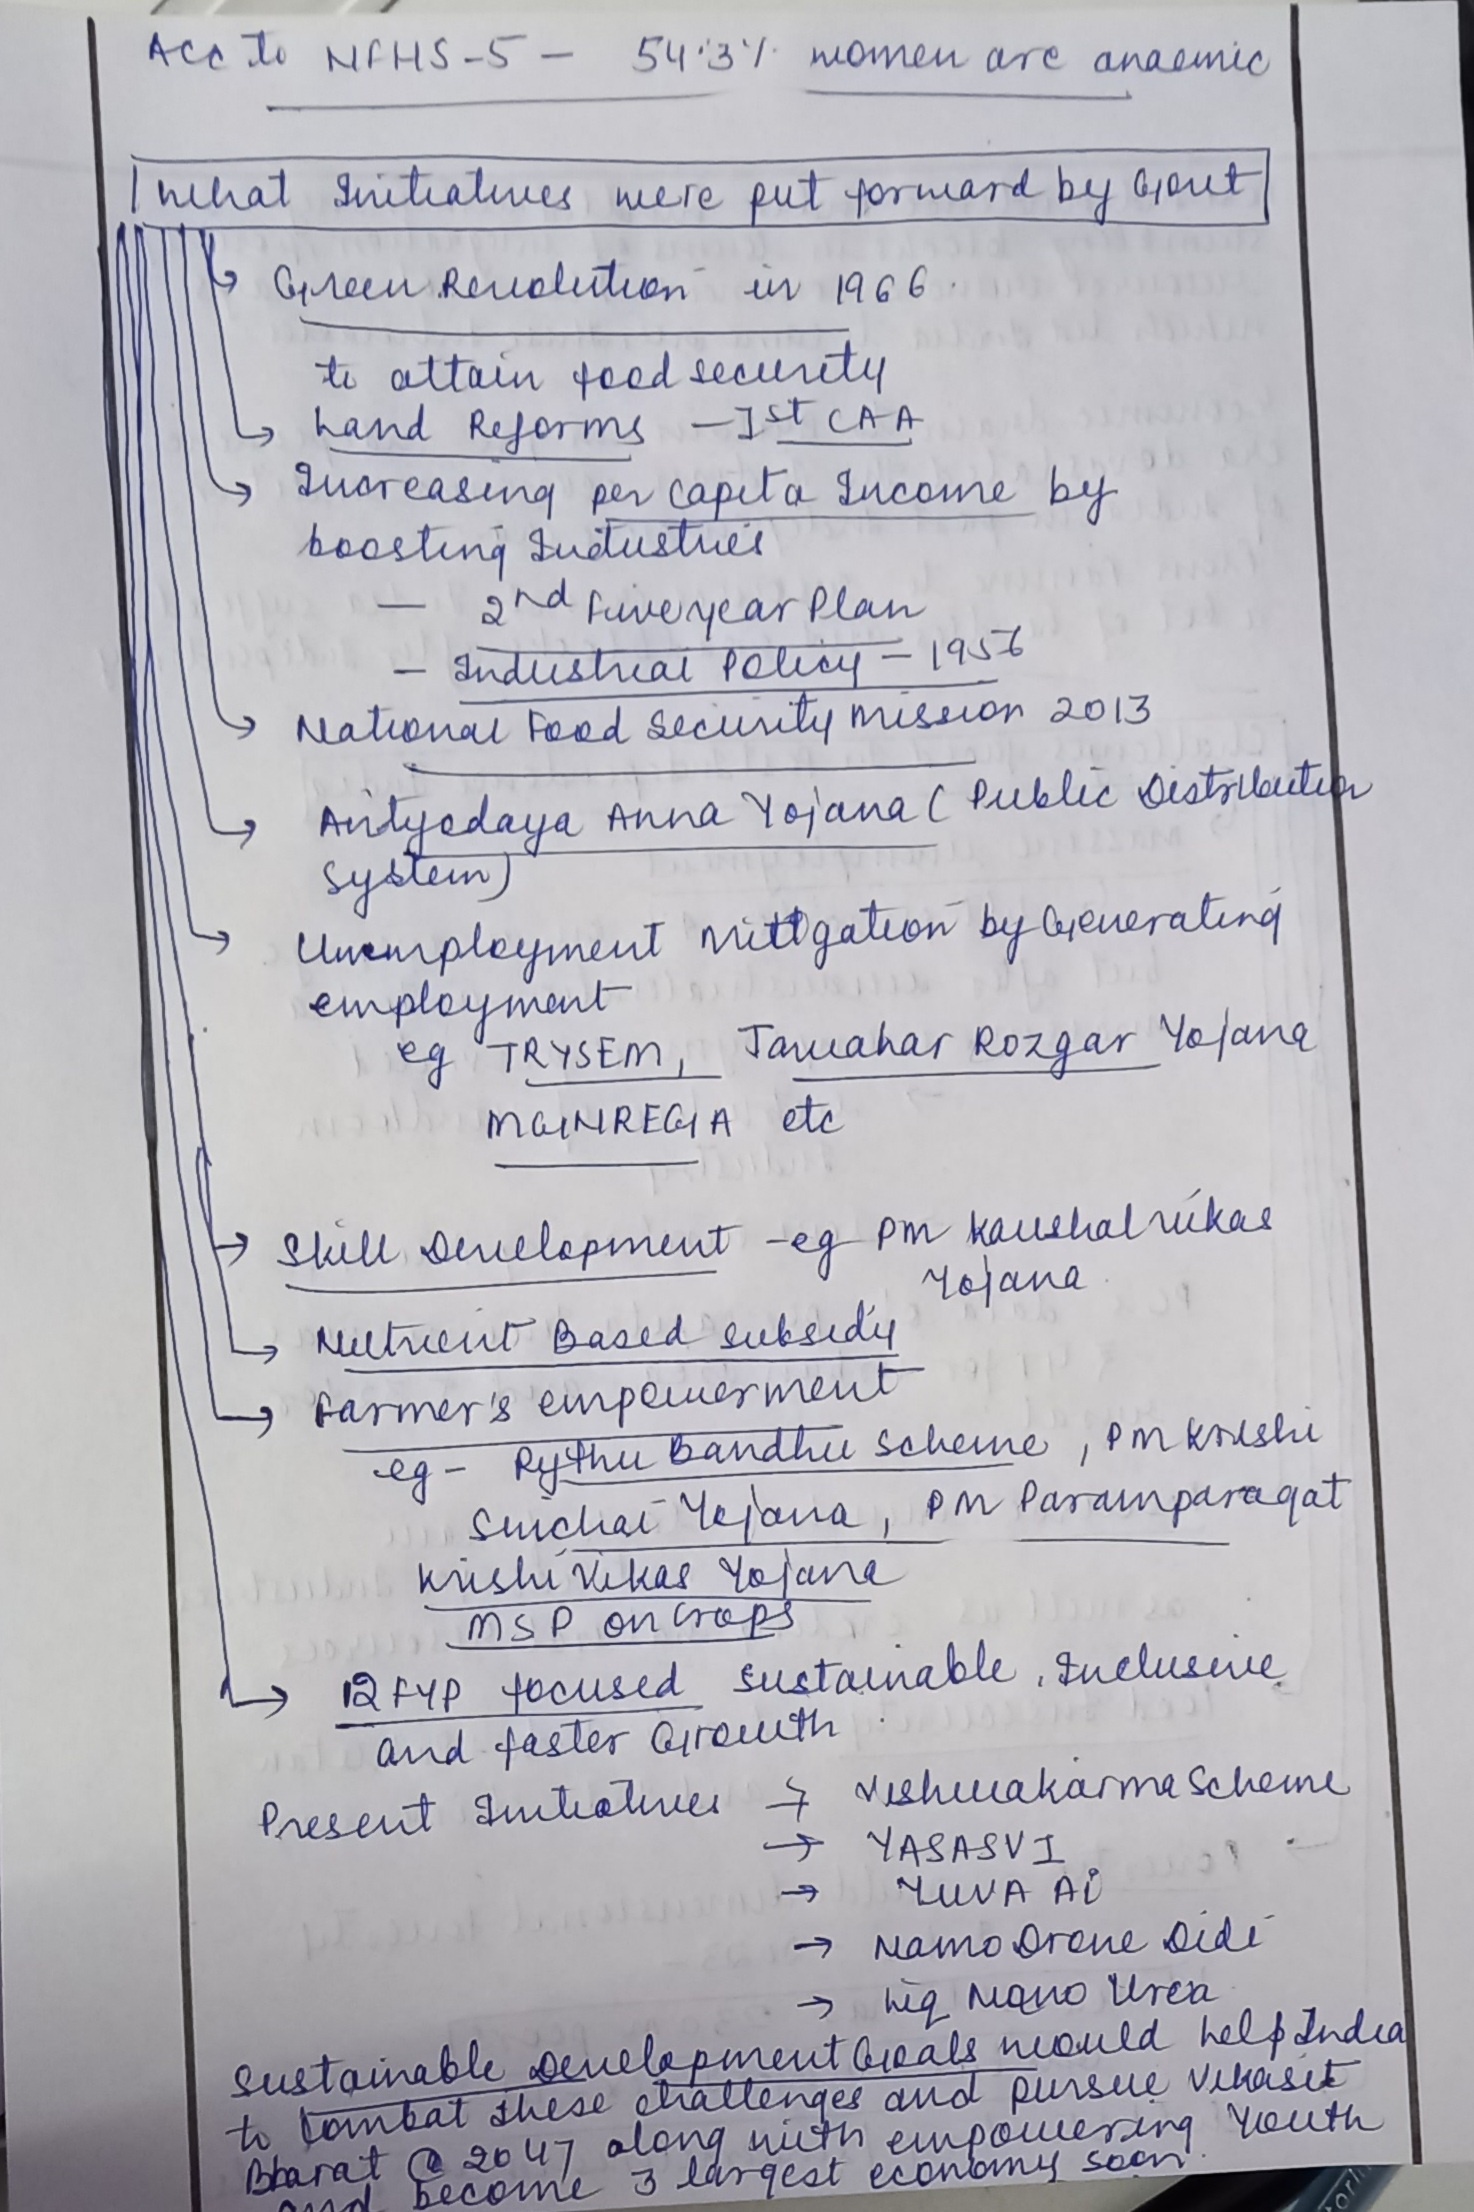 Acc to NFHS-5 - 54.3% women are anaemic
What Initiatives were put forward by Govt
Green Revolution in 1966.
to attain food security
Land Reforms - Ist CAA
Increasing per capita Income by
boosting Industries
- 2nd Five year Plan
- Industrial Policy - 1956
National Food Security Mission 2013
Antyodaya Anna Yojana ( Public Distribution
System)
Unemployment Mittgation by Generating
employment
eg TRYSEM, Jawahar Rozgar Yojana
MGNREGA etc
Skill Development - eg PM Kaushal Vikas
Yojana
Nutrient Based subsidy
Farmer's empowerment
eg - Rythu Bandhu Scheme, PM Krishi
Sinchai Yojana, PM Paramparagat
Krishi Vikas Yojana
MSP on Crops
12 FYP focused sustainable, Inclusive
and faster Growth.
Present Initiatives → Vishwakarma Scheme
→ YASASVI
→ YUVA AI
→ Namo Drone Didi
→ Liq Nano Urea
Sustainable Development Goals would help India
to combat these challenges and pursue Vikasit
Bharat @ 2047 along with empowering Youth
and become 3 largest economy soon.